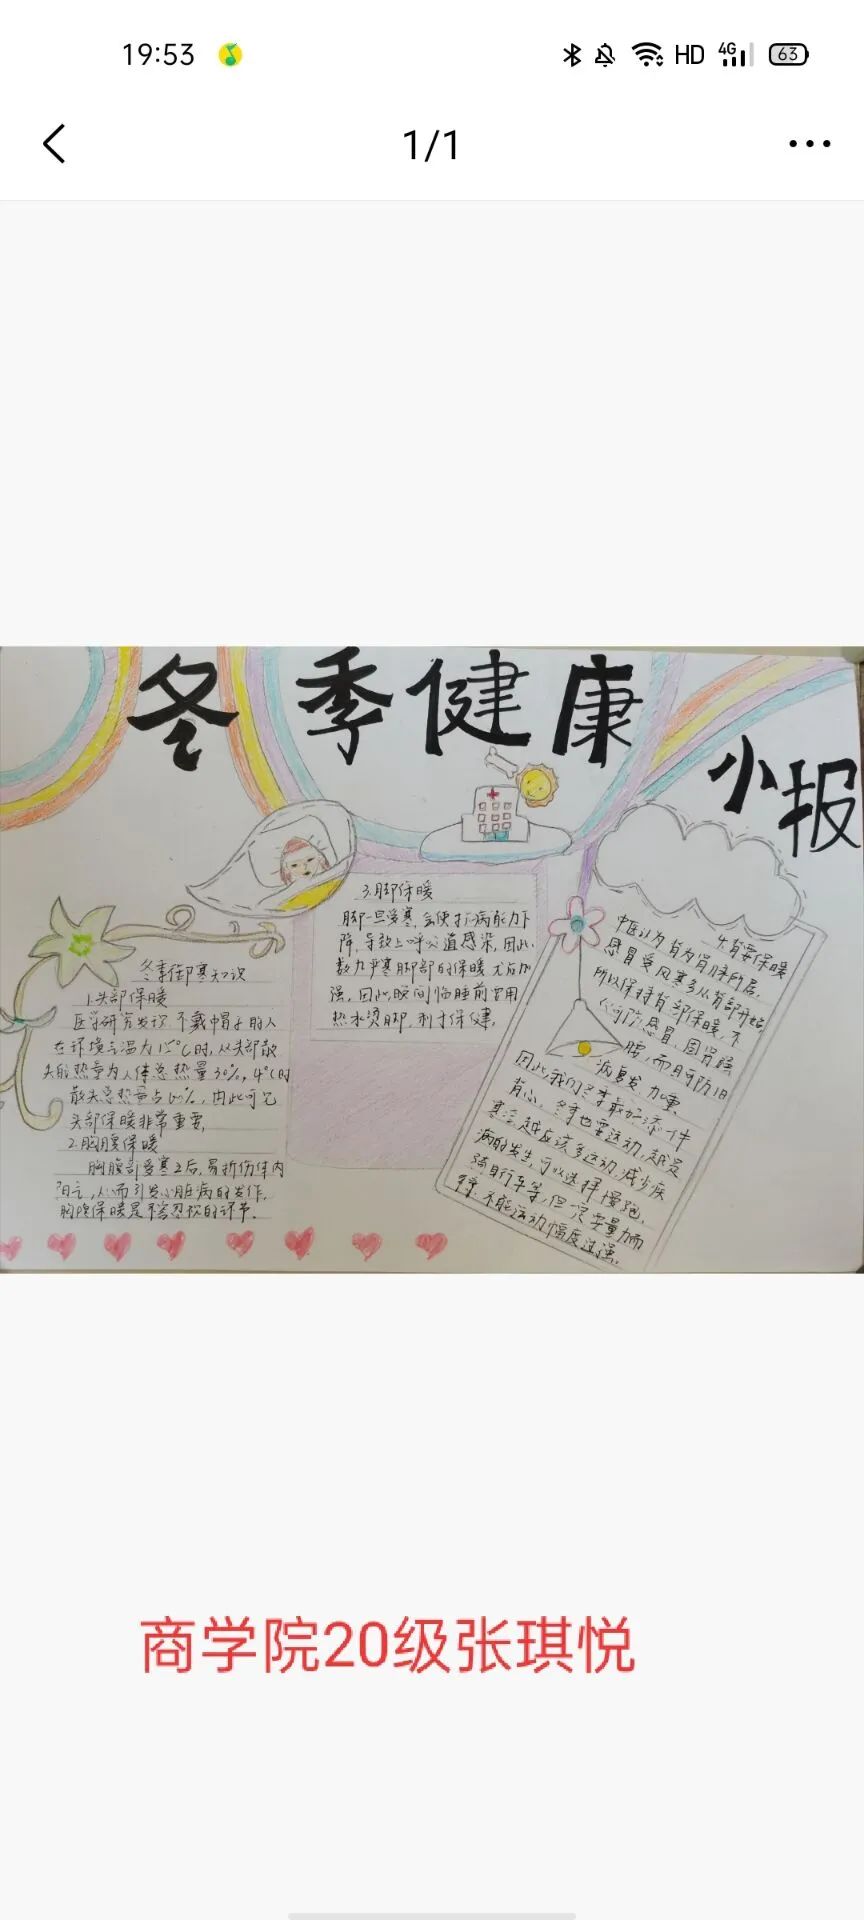 19:53
HD 4G 63
1/1
冬季健康
小报
冬季御寒知识
1.头部保暖
医学研究发现,不戴帽子的人
在环境气温为15℃时,从头部散
失的热量为人体总热量30%,4℃时
散失总热量占60%,由此可见
头部保暖非常重要,
2.胸腹保暖
胸腹部受寒之后,易折伤体内
阳气,从而引发心脏病的发作,
胸腹保暖是不容忽视的环节.
3.脚保暖
脚一旦受寒,会使抗病能力下
降,导致上呼吸道感染,因此
数九严寒脚部的保暖尤应加
强,因此晚间临睡前宜用
热水烫脚,利于保健,
4.背要保暖
中医认为背为肾脉所居,
感冒受风寒多从背部开始,
所以保持背部保暖,不
仅可防感冒、固肾强
腰,而且可防旧
病复发、加重.
因此,我们冬季最好添一件
背心、冬季也要运动,越是
寒冷越应该多运动,减少疾
病的发生,可以选择慢跑、
骑自行车等,但一定要量力而
行,不能运动幅度过强.
商学院20级张琪悦